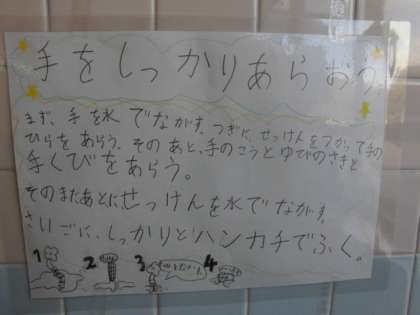 手をしっかりあらおう。
まず、手を水でながす。つぎに、せっけんをつかって手の
ひらをあらう。そのあと、手のこうとゆびのさきと
手くびをあらう。
そのまたあとにせっけんを水でながす。
さいごに、しっかりとハンカチでふく。
1 2 3 4